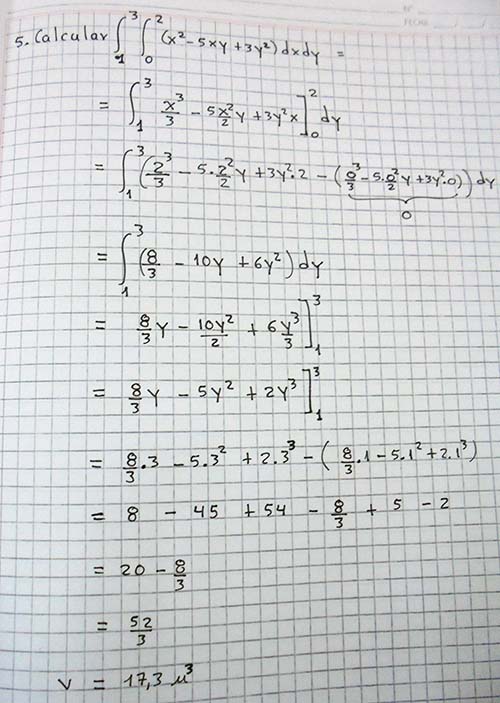 Nº
FECHA
5. Calcular ∫₁³ ∫₀² (x² - 5xy + 3y²) dx dy =
= ∫₁³ x³/3 - 5x²/2 y + 3y²x ]₀² dy
= ∫₁³ (2³/3 - 5.2²/2 y + 3y².2 - (0³/3 - 5.0²/2 y + 3y².0)) dy
0
= ∫₁³ (8/3 - 10y + 6y²) dy
= 8/3 y - 10y²/2 + 6y³/3 ]₁³
= 8/3 y - 5y² + 2y³ ]₁³
= 8/3 .3 - 5.3² + 2.3³ - (8/3 .1 - 5.1² + 2.1³)
= 8 - 45 + 54 - 8/3 + 5 - 2
= 20 - 8/3
= 52/3
V = 17,3 u³